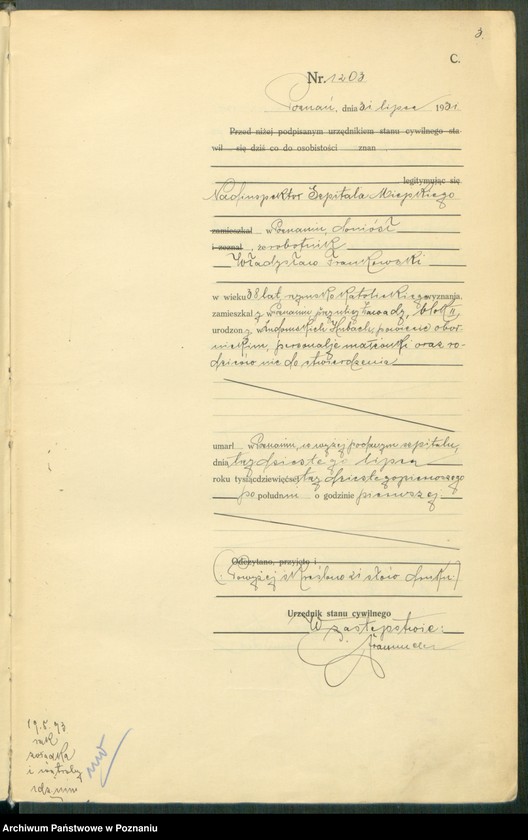 3.
C.
Nr. 1203
Poznań, dnia 31 lipca 1931
Przed niżej podpisanym urzędnikiem stanu cywilnego sta
wił się dziś co do osobistości znan
legitymując się
Nadinspektor Szpitala Miejskiego
zamieszkał w Poznaniu, doniósł
i zeznał , że robotnik
Władysław Frankowski
w wieku 38 lat, rzymsko katolickiego wyznania,
zamieszkał y w Poznaniu przy ulicy blok II,
urodzon y w Ludomskich Hubach, powiecie obor-
nickim, personalje małżonki oraz ro-
dziców nie do stwierdzenia
umarł w Poznaniu, w wyżej podanym szpitalu,
dnia trzydziestego lipca
roku tysiącdziewięćset trzydziestego pierwszego
po południu o godzinie pierwszej
Odczytano, przyjęto i
(Powyżej skreślono 21 słów druku.)
Urzędnik stanu cywilnego
W zastępstwie:
19.5.93
i
Archiwum Państwowe w Poznaniu